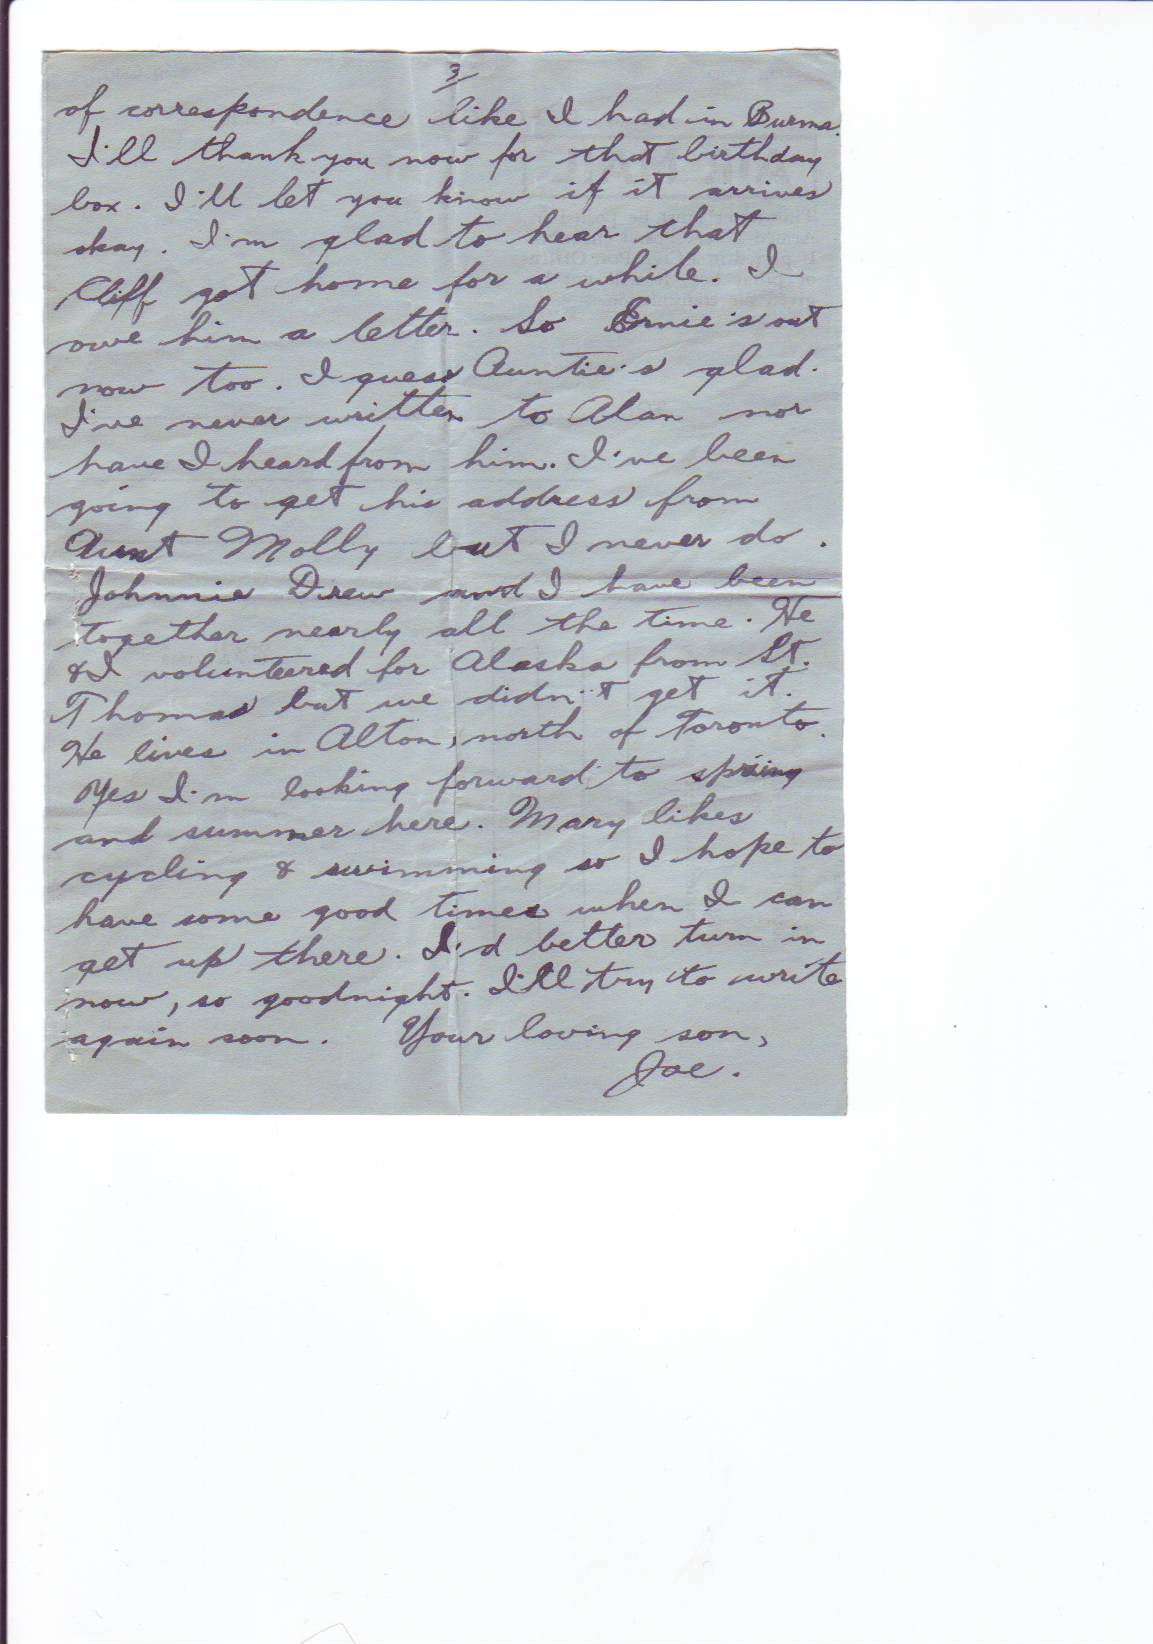 3/
of correspondence like I had in Burma.
I'll thank you now for that birthday
box. I'll let you know if it arrives
okay. I'm glad to hear that
Cliff got home for a while. I
owe him a letter. So Ernie's out
now too. I guess Auntie's glad.
I've never written to Alan nor
have I heard from him. I've been
going to get his address from
Aunt Molly but I never do.
Johnnie Drew and I have been
together nearly all the time. He
& I volunteered for Alaska from St.
Thomas but we didn't get it.
He lives in Alton, north of Toronto.
Yes I'm looking forward to spring
and summer here. Mary likes
cycling & swimming so I hope to
have some good times when I can
get up there. I'd better turn in
now, so goodnight. I'll try to write
again soon. Your loving son,
Joe.